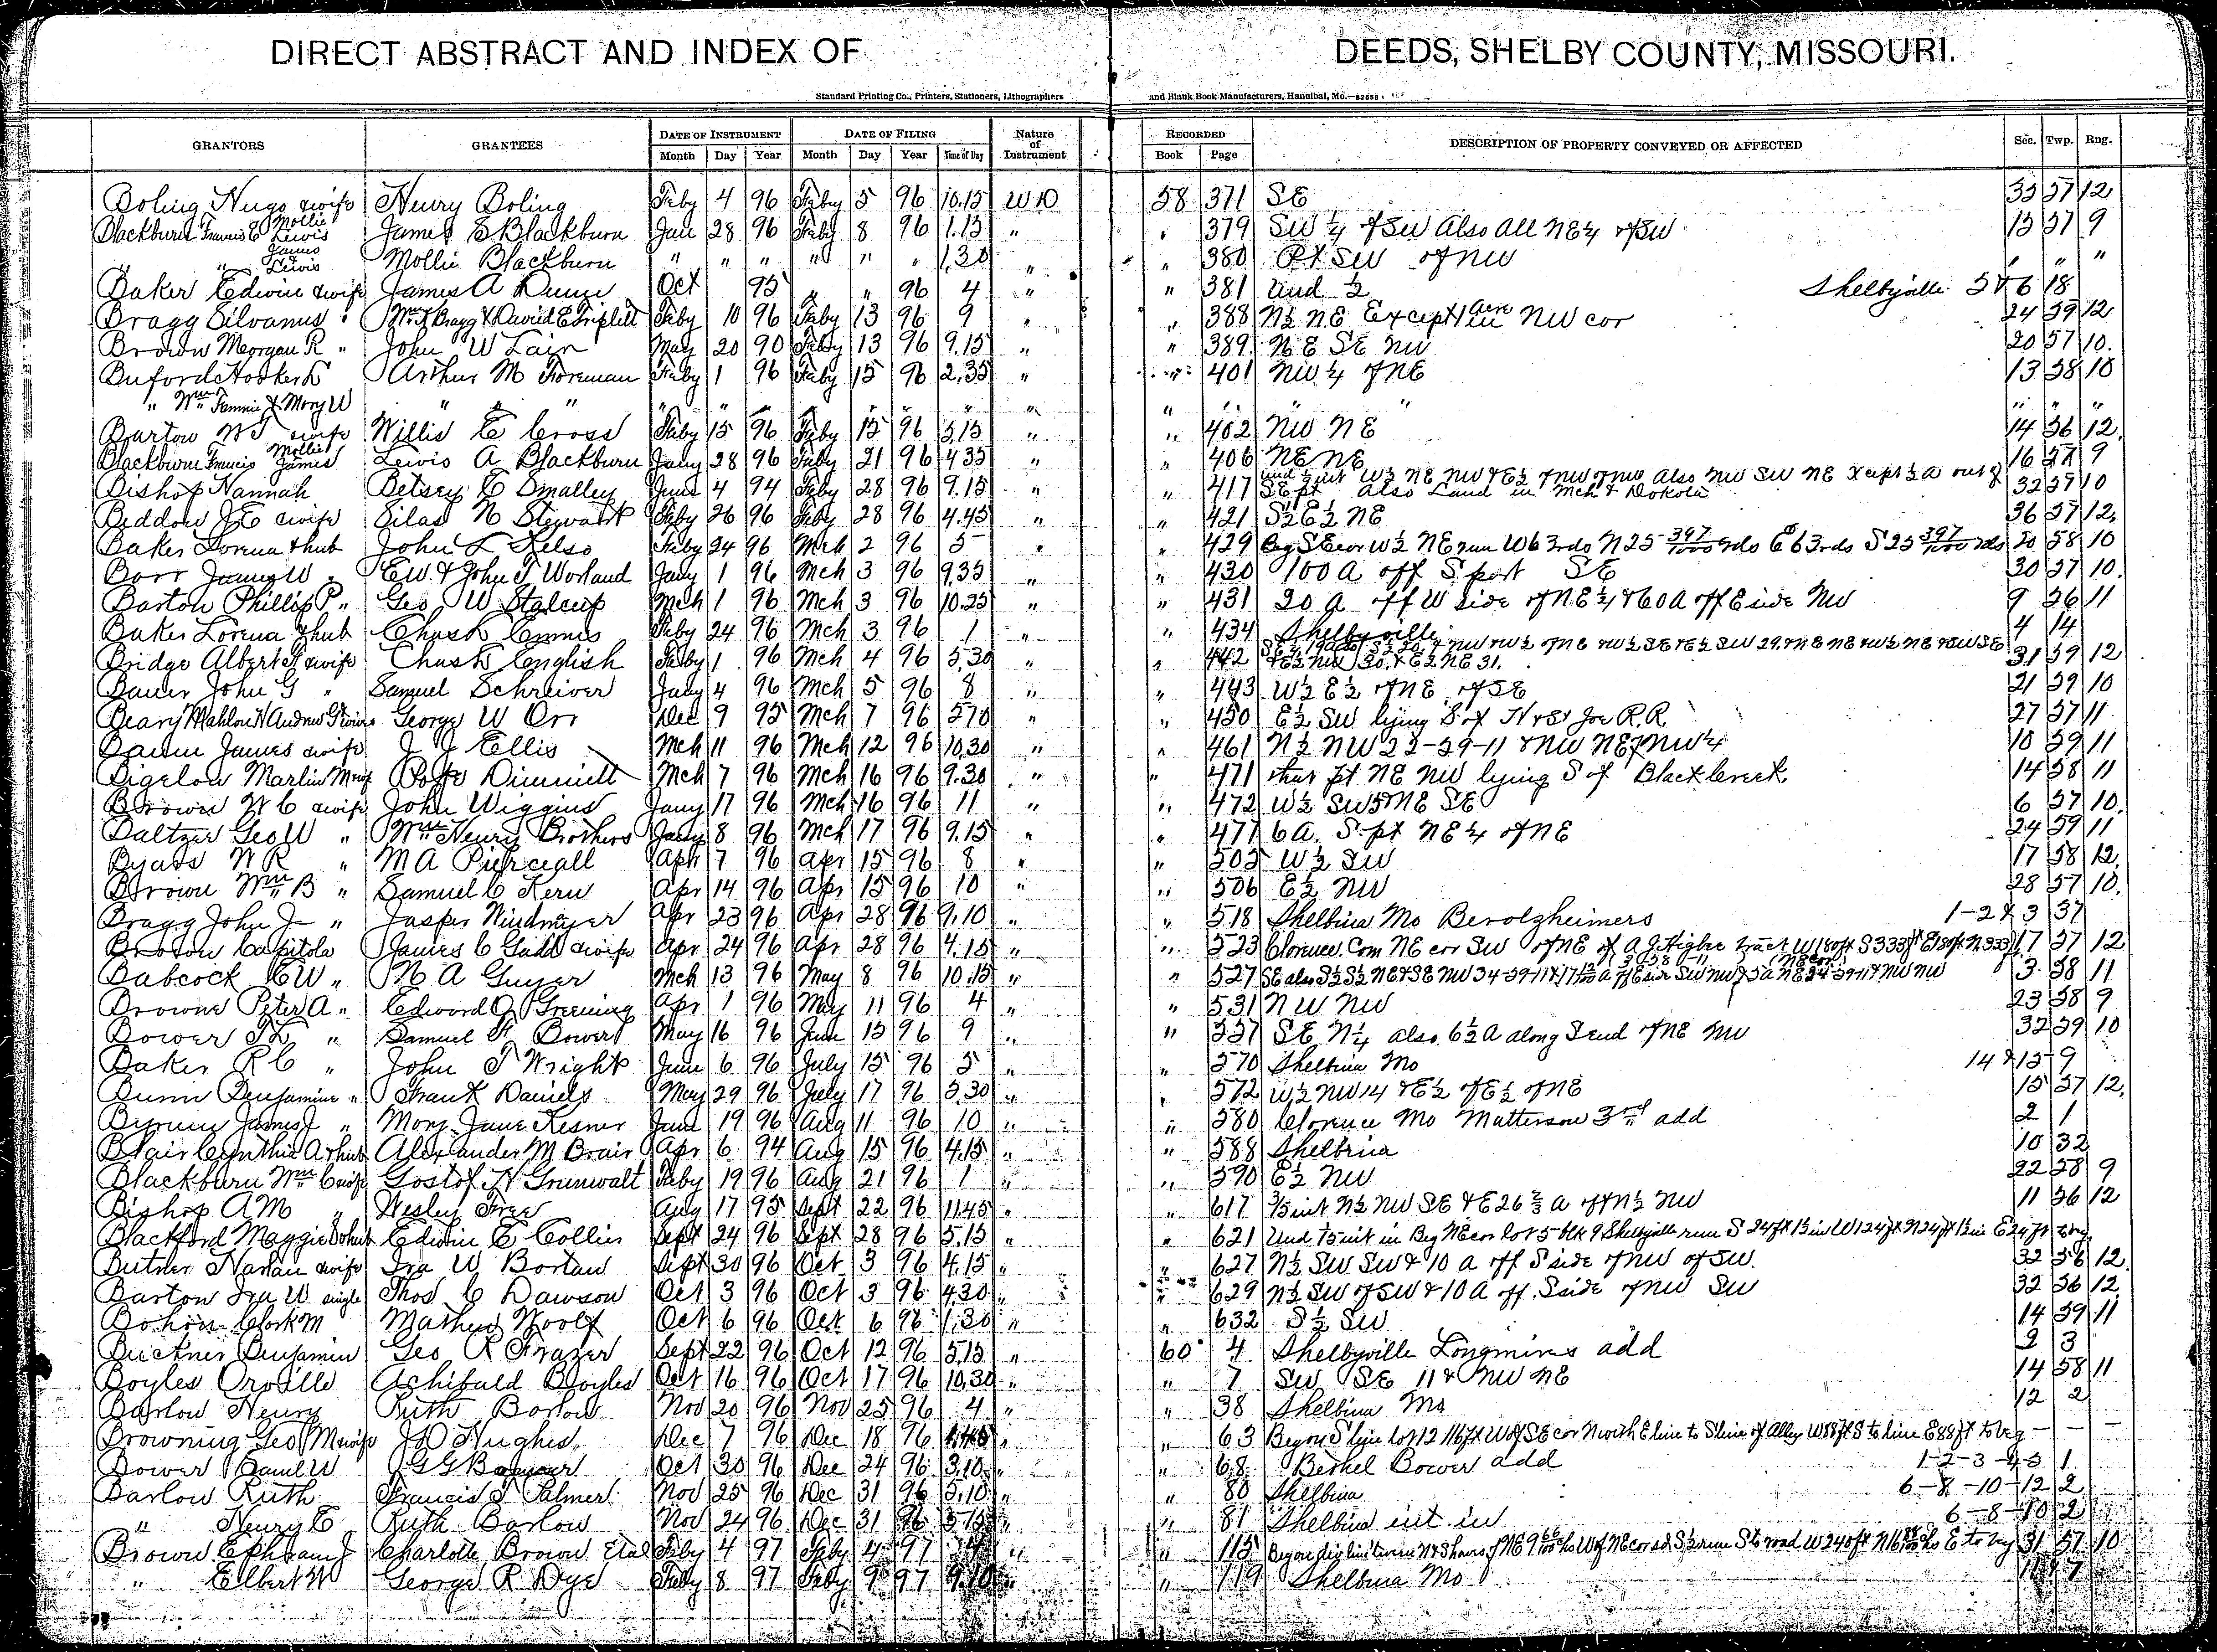 DIRECT ABSTRACT AND INDEX OF DEEDS, SHELBY COUNTY, MISSOURI.
Standard Printing Co., Printers, Stationers, Lithographers and Blank Book Manufacturers, Hannibal, Mo.
GRANTORS GRANTEES DATE OF INSTRUMENT DATE OF FILING Nature of Instrument RECORDED DESCRIPTION OF PROPERTY CONVEYED OR AFFECTED Sec. Twp. Rng.
Month Day Year Month Day Year Time of Day Book Page
Boling Hugo & wife Henry Boling Feby 4 96 Feby 5 96 10.15 W D 58 371 SE 35 57 12
Blackburn Francis E Mollie Lewis James E Blackburn Jan 28 96 Feby 8 96 1.15 " " 379 SW 1/4 of SW Also All NE 1/4 of SW 15 57 9
" " James & Lewis Mollie Blackburn " " " " " " 1.30 " " 380 Pt SW of NW " " "
Baker Edwin & wife James A Dunn Oct 95 " " 96 4 " " 381 Und 1/2 Shelbyville 5 & 6 18
Bragg Silvanus " Wm F Bragg & David E Triplett Feby 10 96 Feby 13 96 9 " " 388 N 1/2 NE Except 1 acre in NW cor 24 59 12
Brown Morgan R " John W Lair May 20 90 Feby 13 96 9.15 " " 389 NE SE NW 20 57 10
Buford Hooker L Arthur M Foreman Feby 1 96 Feby 15 96 2.35 " " 401 NW 1/4 of NE 13 58 10
" Wm Fannie & Mary W " " " " " " " " " " " " " " " " " "
Barton W T & wife Willis E Cross Feby 15 96 Feby 15 96 3.15 " " 402 NW NE 14 56 12
Blackburn Francis Mollie James Lewis A Blackburn Jany 28 96 Feby 21 96 4.35 " " 406 NE NE 16 57 9
Bishop Hannah Betsey C Smalley June 4 94 Feby 28 96 9.15 " " 417 Und 1/2 int W 1/2 NE NW & E 1/2 of NW of NW Also NW SW NE Xcept 1/2 a out of SE pt Also Land in Mch & Dakota 32 57 10
Beddow J E & wife Silas N Stewart Feby 26 96 Feby 28 96 4.45 " " 421 S 1/2 E 1/2 NE 36 57 12
Baker Lorena & hub John L Kelso Feby 24 96 Mch 2 96 5 " " 429 Beg SE cor W 1/2 NE run W 63 rds N 25 397/1000 rds E 63 rds S 25 397/1000 rds 20 58 10
Barr James W " E W. & John T Worland Jany 1 96 Mch 3 96 9.35 " " 430 100 A off S part SE 30 57 10
Barton Phillip P " Geo W Stalcup Mch 1 96 Mch 3 96 10.25 " " 431 20 A off W side of NE 1/4 & 60 A off E side NW 9 56 11
Baker Lorena & hub Chas L Ennis Feby 24 96 Mch 3 96 1 " " 434 Shelbyville 4 14
Bridge Albert F & wife Chas L English Feby 1 96 Mch 4 96 5.30 " " 442 & E 1/2 NW 30, & E 1/2 NE 31. 31 59 12
Bauer John G " Samuel Schreiver Jany 4 96 Mch 5 96 8 " " 443 W 1/2 E 1/2 of NE of SE 21 59 10
Beary Mahlon H Andrew G & wives George W Orr Dec 9 95 Mch 7 96 " " 450 E 1/2 SW lying S of H & St Joe R.R. 27 57 11
James & wife J J Ellis Mch 11 96 Mch 12 96 10.30 " " 461 N 1/2 NW & NW NE of NW 1/4 10 59 11
Bigelow Marlin M & wife Dimmitt Mch 7 96 Mch 16 96 9.30 " " 471 that pt NE NW lying S of Black Creek 14 58 11
Brown W C & wife John Wiggins Jany 17 96 Mch 16 96 11 " " 472 W 1/2 SW & NE SE 6 57 10
Baltzer Geo W " Wm Henry Brothers Jany 8 96 Mch 17 96 9.15 " " 477 6 A. S. pt NE 1/4 of NE 24 59 11
Byars W R " M A Pierceall Apr 7 96 Apr 15 96 8 " " 505 W 1/2 SW 17 58 12
Brown Wm B " Samuel C Kern Apr 14 96 Apr 15 96 10 " " 506 E 1/2 NW 28 57 10
Bragg John J " Jasper Windmyer Apr 23 96 Apr 28 96 9.10 " " 518 Shelbina Mo Berolzheimers 1-2 & 3 37
Broton Capitola James C Gadd & wife Apr 24 96 Apr 28 96 4.15 " " 523 Clorence. Com NE cor SW of NE of A J Higbee tract W 180 ft S 333 ft E 180 ft N 333 ft 17 57 12
Babcock E W " N A Guyer Mch 13 96 May 8 96 10.15 " " 527 SE also S 1/2 S 1/2 NE & SE NW 34-59-11 3 58 11
Browne Peter A " Edward O Greening Apr 1 96 May 11 96 4 " " 531 NW NW 23 58 9
Bower T L " Samuel F Bower May 16 96 June 15 96 9 " " 557 SE N 1/4 also 6 1/2 A along S end of NE NW 32 59 10
Baker R C " John T Wright June 6 96 July 15 96 5 " " 570 Shelbina Mo 14 & 15 9
Bunn Benjamine " Frank Daniels May 29 96 July 17 96 5.30 " " 572 W 1/2 NW 14 & E 1/2 of E 1/2 of NE 15 57 12
Byrum James J " Mary Jane Kesner June 19 96 Aug 11 96 10 " " 580 Clorence Mo Matterson 3rd add 2 1
Blair Cynthia A & hub Alexander M Brair Apr 6 94 Aug 15 96 4.15 " " 588 Shelbina 10 32
Blackburn Wm C & wife Gostof H Grunwalt Feby 19 96 Aug 21 96 1 " " 590 E 1/2 NW 22 58 9
Bishop A M " Wesley Free Aug 17 95 Sept 22 96 11.45 " " 617 int N 1/2 NW SE & E 26 2/3 a of N 1/2 NW 11 56 12
Blackford Maggie D & hub Edwin E Collier Sept 24 96 Sept 28 96 5.15 " " 621 Und int in Beg NE cor lot 5 blk 9 Shelbyville run S 24 ft W 124 ft N 24 ft E 24 ft to beg
Butner Harlan & wife Ira W Bortan Sept 30 96 Oct 3 96 4.15 " " 627 N 1/2 SW SW & 10 a off S side of NW of SW. 32 56 12
Barton Ira W single Thos C Dawson Oct 3 96 Oct 3 96 4.30 " " 629 N 1/2 SW of SW & 10 A off S side of NW SW 32 56 12
Bohon Clark M Mathew Woolf Oct 6 96 Oct 6 96 1.30 " " 632 S 1/2 SW 14 59 11
Buckner Benjamin Geo R Frazer Sept 22 96 Oct 12 96 5.15 " 60 4 Shelbyville Longmires add 2 3
Boyles Orville Achibald Boyles Oct 16 96 Oct 17 96 10.30 " " 7 SW SE 11 & NW NE 14 58 11
Barlow Henry Ruth Barlow Nov 20 96 Nov 25 96 4 " " 38 Shelbina Mo 12 2
Browning Geo M & wife J D Hughes Dec 7 96 Dec 18 96 " " 63 Beg on S line lot 12 116 ft W of SE cor N with E line to S line of Alley W 88 ft S to line E 88 ft to beg — — —
Bower Saml W G G Bower Oct 30 96 Dec 24 96 3.10 " " 68 Bethel Bower add 1-2-3-4-5 1
Barlow Ruth Francis T Palmer Nov 25 96 Dec 31 96 5.10 " " 80 Shelbina 6-8-10-12 2
" Henry E Ruth Barlow Nov 24 96 Dec 31 96 " " 81 Shelbina int in 6-8-10 2
Brown Ephraim J Charlotte Brown Etal Feby 4 97 Feby 4 97 " " 115 31 57 10
" Elbert W George R Dye Feby 8 97 Feby 9 97 9.10 " " 119 Shelbina Mo